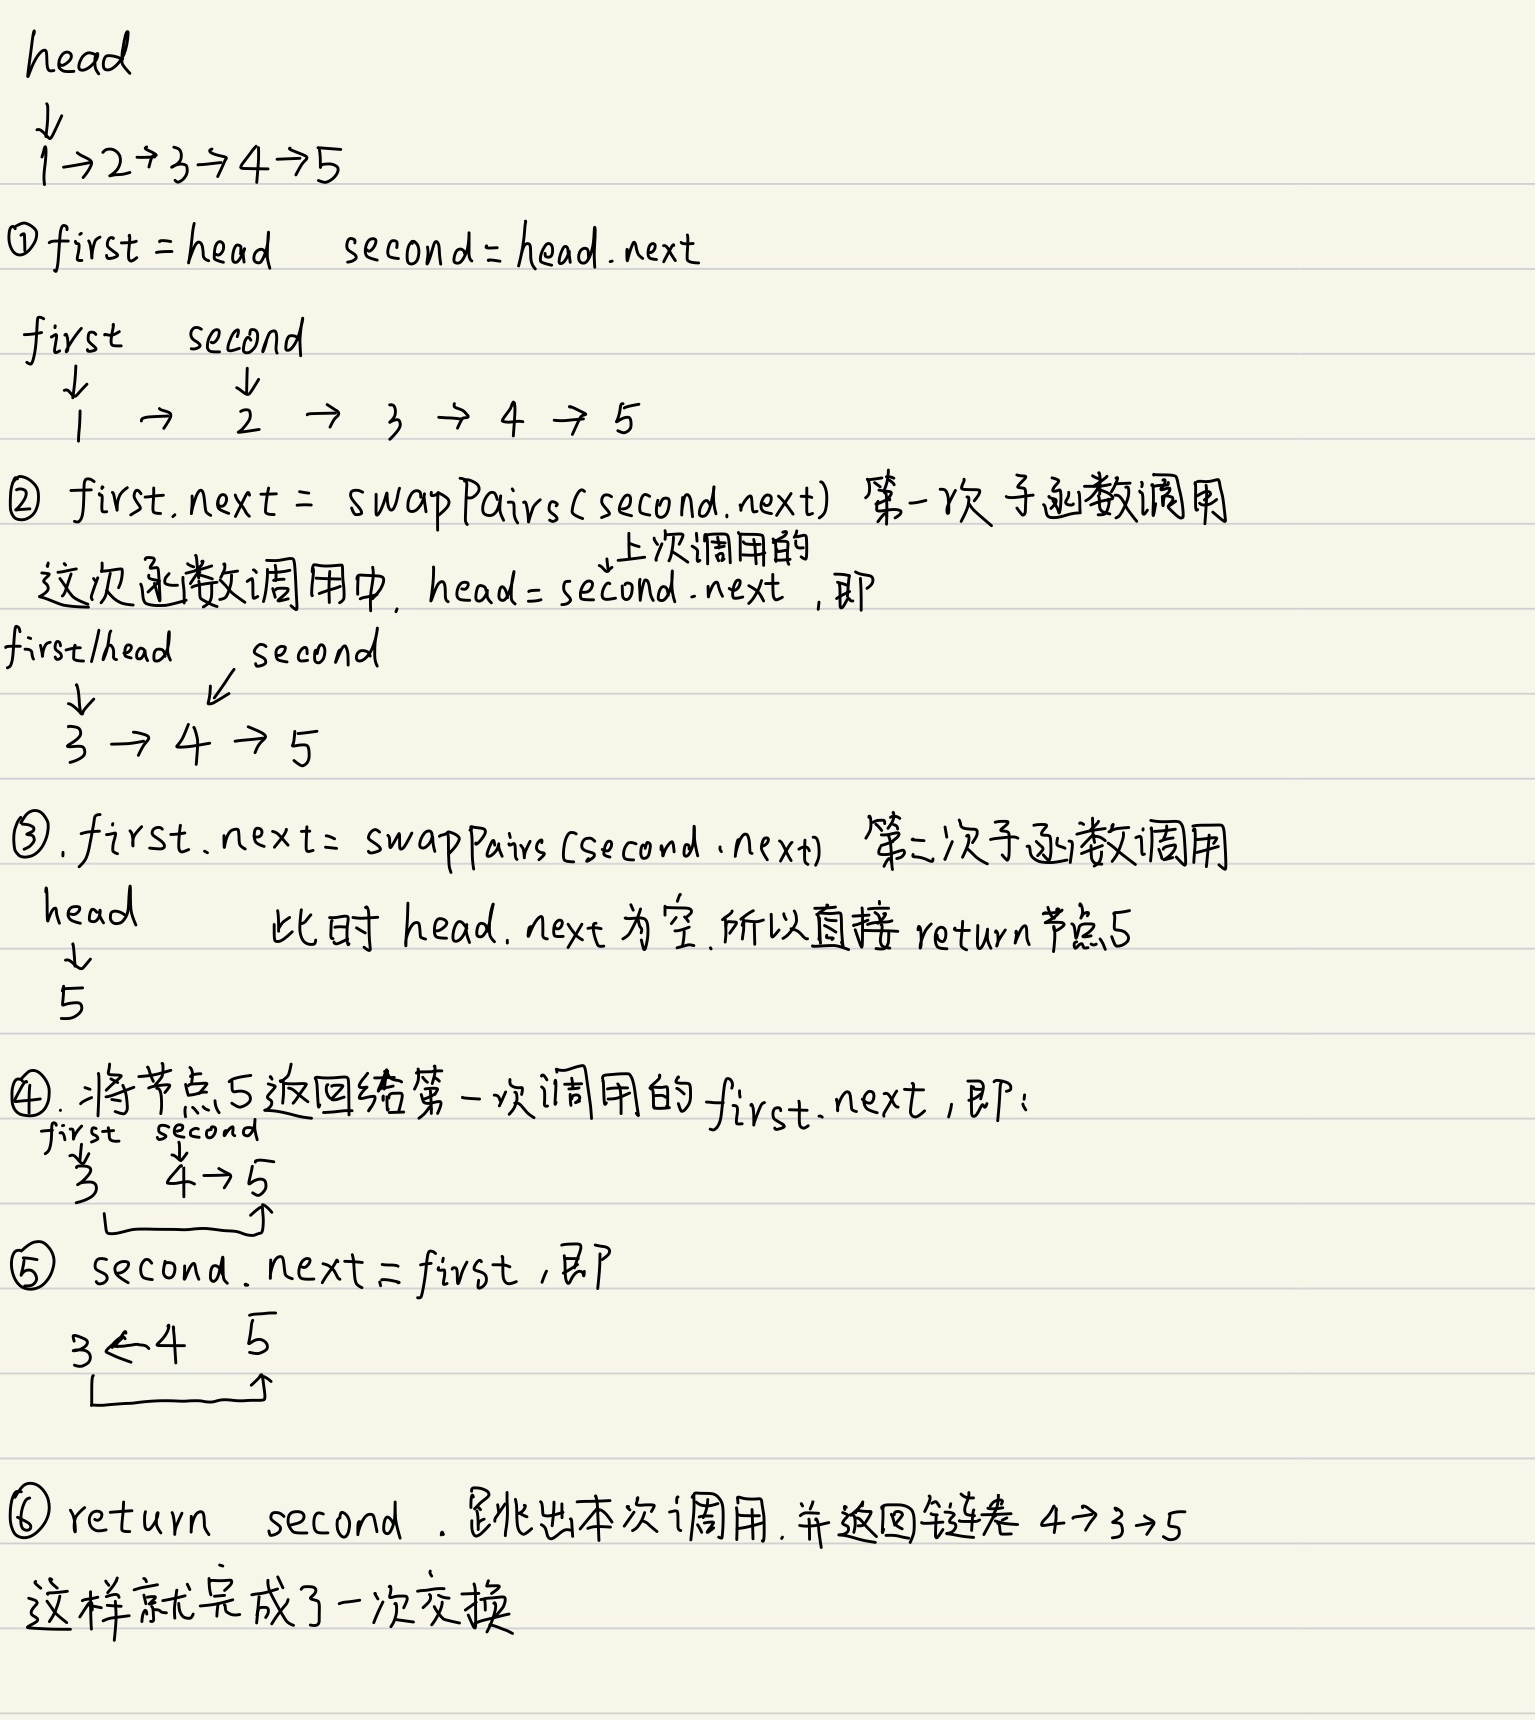 head
↓
1→2→3→4→5
①first=head second=head.next
first second
↓ ↓
1 → 2 → 3 → 4 → 5
② first.next = swapPairs(second.next) 第一次子函数调用
↓上次调用的
这次函数调用中, head=second.next,即
first/head second
↓ ↙
3 → 4 → 5
③.first.next=swapPairs(second.next) 第二次子函数调用
head 此时 head.next为空.所以直接return节点5
↓
5
④.将节点5返回给第一次调用的first.next,即:
first second
↓ ↓
3 4→5
⑤ second.next=first,即
3←4 5
⑥return second.跳出本次调用.并返回链表 4→3→5
这样就完成了一次交换